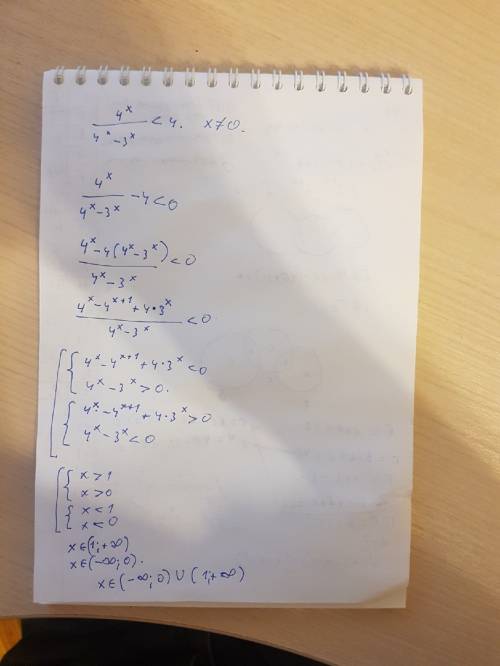 4^x / (4^x - 3^x) < 4. x ≠ 0.
4^x / (4^x - 3^x) - 4 < 0
(4^x - 4(4^x - 3^x)) / (4^x - 3^x) < 0
(4^x - 4^(x+1) + 4·3^x) / (4^x - 3^x) < 0
4^x - 4^(x+1) + 4·3^x < 0
4^x - 3^x > 0.
4^x - 4^(x+1) + 4·3^x > 0
4^x - 3^x < 0
x > 1
x > 0
x < 1
x < 0
x ∈ (1; +∞)
x ∈ (-∞; 0).
x ∈ (-∞; 0) ∪ (1; +∞)